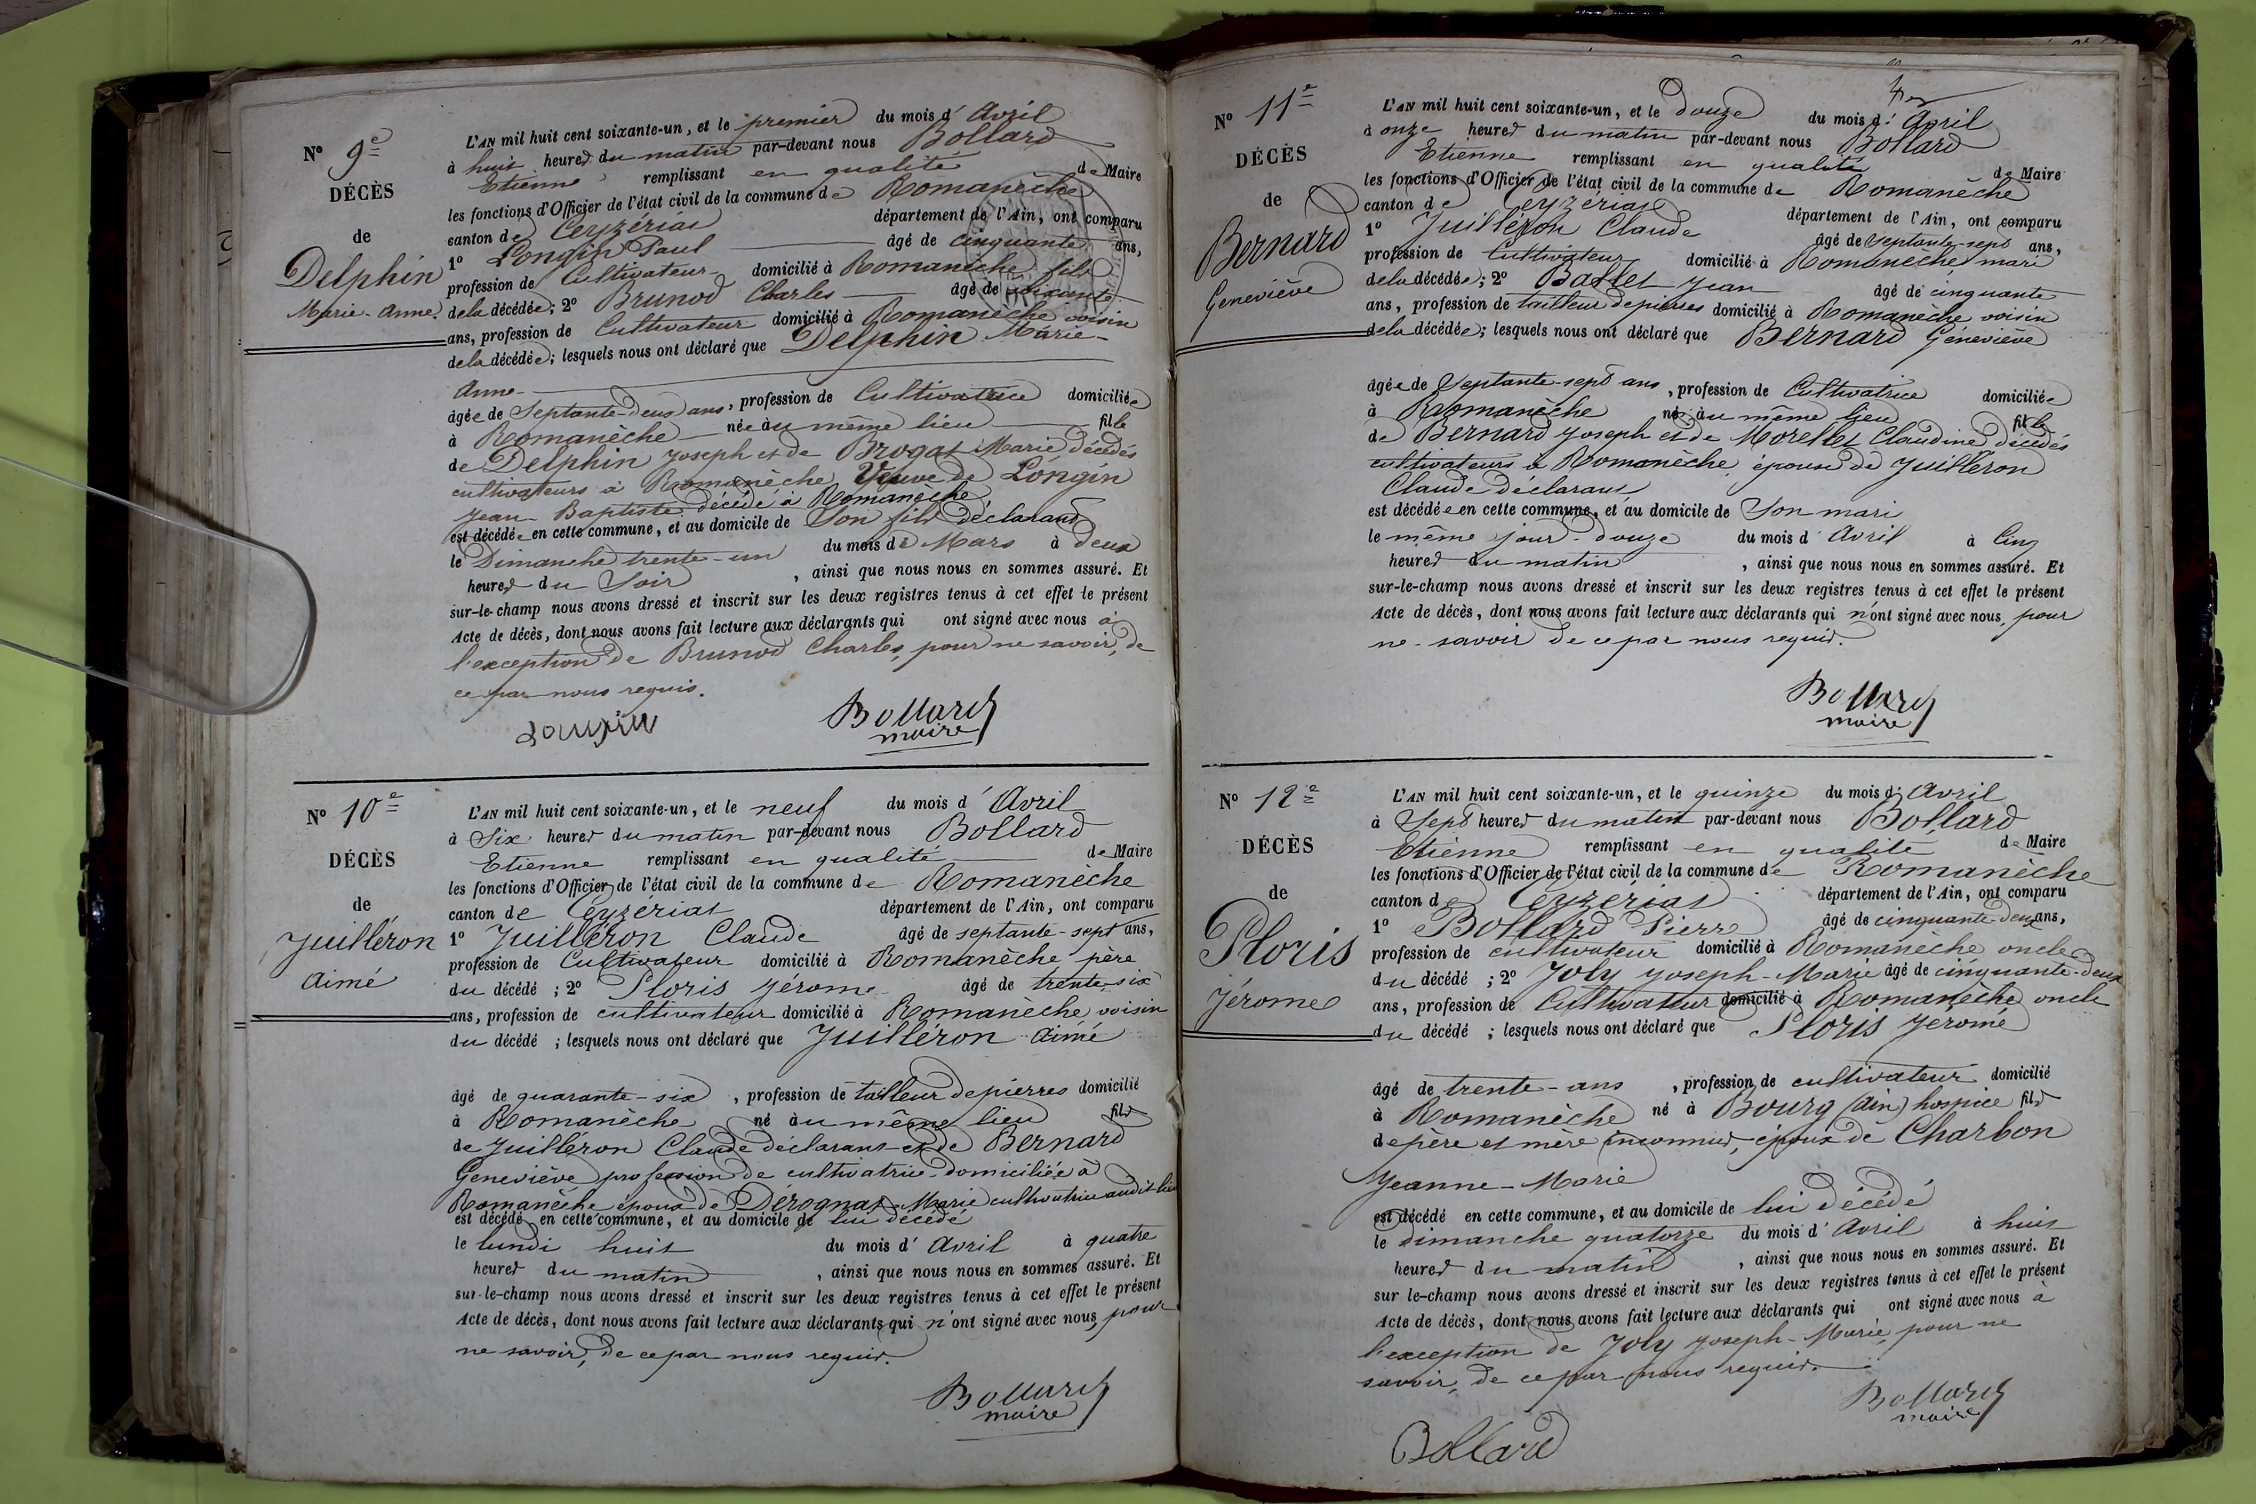 N° 9e
DÉCÈS
de
Delphin
Marie-Anne.
L'AN mil huit cent soixante-un, et le premier du mois d'Avril
à huit heures du matin par-devant nous Bollard
Etienne remplissant en qualité de Maire
les fonctions d'Officier de l'état civil de la commune de Romanèche
canton de Ceyzériat département de l'Ain, ont comparu
1° Longin Paul âgé de cinquante ans,
profession de Cultivateur domicilié à Romanèche fils
de la décédée; 2° Brunod Charles âgé de soixante
ans, profession de Cultivateur domicilié à Romanèche voisin
de la décédée; lesquels nous ont déclaré que Delphin Marie-
Anne
âgée de Septante-deux ans, profession de Cultivatrice domiciliée
à Romanèche née au même lieu fille
de Delphin Joseph et de Brogat Marie décédés
cultivateurs à Romanèche Veuve de Longin
Jean-Baptiste décédé à Romanèche
est décédée en cette commune, et au domicile de Son fils déclarant
le Dimanche trente-un du mois de Mars à deux
heures du Soir, ainsi que nous nous en sommes assuré. Et
sur-le-champ nous avons dressé et inscrit sur les deux registres tenus à cet effet le présent
Acte de décès, dont nous avons fait lecture aux déclarants qui ont signé avec nous à
l'exception de Brunod Charles, pour ne savoir, de
ce par nous requis.
Bollard
maire
N° 10e
DÉCÈS
de
Juilléron
Aimé
L'AN mil huit cent soixante-un, et le neuf du mois d'Avril
à Six heures du matin par-devant nous Bollard
Etienne remplissant en qualité de Maire
les fonctions d'Officier de l'état civil de la commune de Romanèche
canton de Ceyzériat département de l'Ain, ont comparu
1° Juilléron Claude âgé de septante-sept ans,
profession de Cultivateur domicilié à Romanèche père
du décédé ; 2° Ploris Jérome âgé de trente-six
ans, profession de cultivateur domicilié à Romanèche voisin
du décédé ; lesquels nous ont déclaré que Juilléron Aimé
âgé de quarante-six, profession de tailleur de pierres domicilié
à Romanèche né au même lieu fils
de Juilléron Claude déclarant et de Bernard
Geneviève profession de cultivatrice domiciliée à
Romanèche époux de Dérognat Marie cultivatrice audit-lieu
est décédé en cette commune, et au domicile de lui décédé
le lundi huit du mois d'Avril à quatre
heures du matin, ainsi que nous nous en sommes assuré. Et
sur-le-champ nous avons dressé et inscrit sur les deux registres tenus à cet effet le présent
Acte de décès, dont nous avons fait lecture aux déclarants qui n'ont signé avec nous, pour
ne savoir, de ce par nous requis.
Bollard
maire
N° 11e
DÉCÈS
de
Bernard
Geneviève
L'AN mil huit cent soixante-un, et le douze du mois d'Avril
à onze heures du matin par-devant nous Bollard
Etienne remplissant en qualité de Maire
les fonctions d'Officier de l'état civil de la commune de Romanèche
canton de Ceyzériat département de l'Ain, ont comparu
1° Juilléron Claude âgé de septante-sept ans,
profession de Cultivateur domicilié à Romanèche mari
de la décédée; 2° Baillet Jean âgé de cinquante
ans, profession de tailleur de pierres domicilié à Romanèche voisin
de la décédée; lesquels nous ont déclaré que Bernard Géneviève
âgée de Septante-sept ans, profession de Cultivatrice domiciliée
à Romanèche né au même lieu fille
de Bernard Joseph et de Morellet Claudine décédés
cultivateurs à Romanèche, épouse de Juilléron
Claude déclarant
est décédée en cette commune, et au domicile de Son mari
le même jour-douze du mois d'Avril à Cinq
heures du matin, ainsi que nous nous en sommes assuré. Et
sur-le-champ nous avons dressé et inscrit sur les deux registres tenus à cet effet le présent
Acte de décès, dont nous avons fait lecture aux déclarants qui n'ont signé avec nous, pour
ne-savoir de ce par nous requis.
Bollard
maire
N° 12e
DÉCÈS
de
Ploris
Jérome
L'AN mil huit cent soixante-un, et le quinze du mois d'Avril
à Sept heures du matin par-devant nous Bollard
Etienne remplissant en qualité de Maire
les fonctions d'Officier de l'état civil de la commune de Romanèche
canton de Ceyzériat département de l'Ain, ont comparu
1° Bollard Pierre âgé de cinquante-deux ans,
profession de cultivateur domicilié à Romanèche oncle
du décédé ; 2° Joly Joseph-Marie âgé de cinquante-deux
ans, profession de Cultivateur domicilié à Romanèche oncle
du décédé ; lesquels nous ont déclaré que Ploris Jéromé
âgé de trente-ans, profession de cultivateur domicilié
à Romanèche né à Bourg (Ain) hospice fils
de père et mère inconnus, époux de Charbon
Jeanne-Marie
est décédé en cette commune, et au domicile de lui décédé
le dimanche quatorze du mois d'Avril à huit
heures du matin, ainsi que nous nous en sommes assuré. Et
sur le-champ nous avons dressé et inscrit sur les deux registres tenus à cet effet le présent
Acte de décès, dont nous avons fait lecture aux déclarants qui ont signé avec nous à
l'exception de Joly Joseph-Marie, pour ne
savoir, de ce par nous requis.
Bollard
maire
Bollard